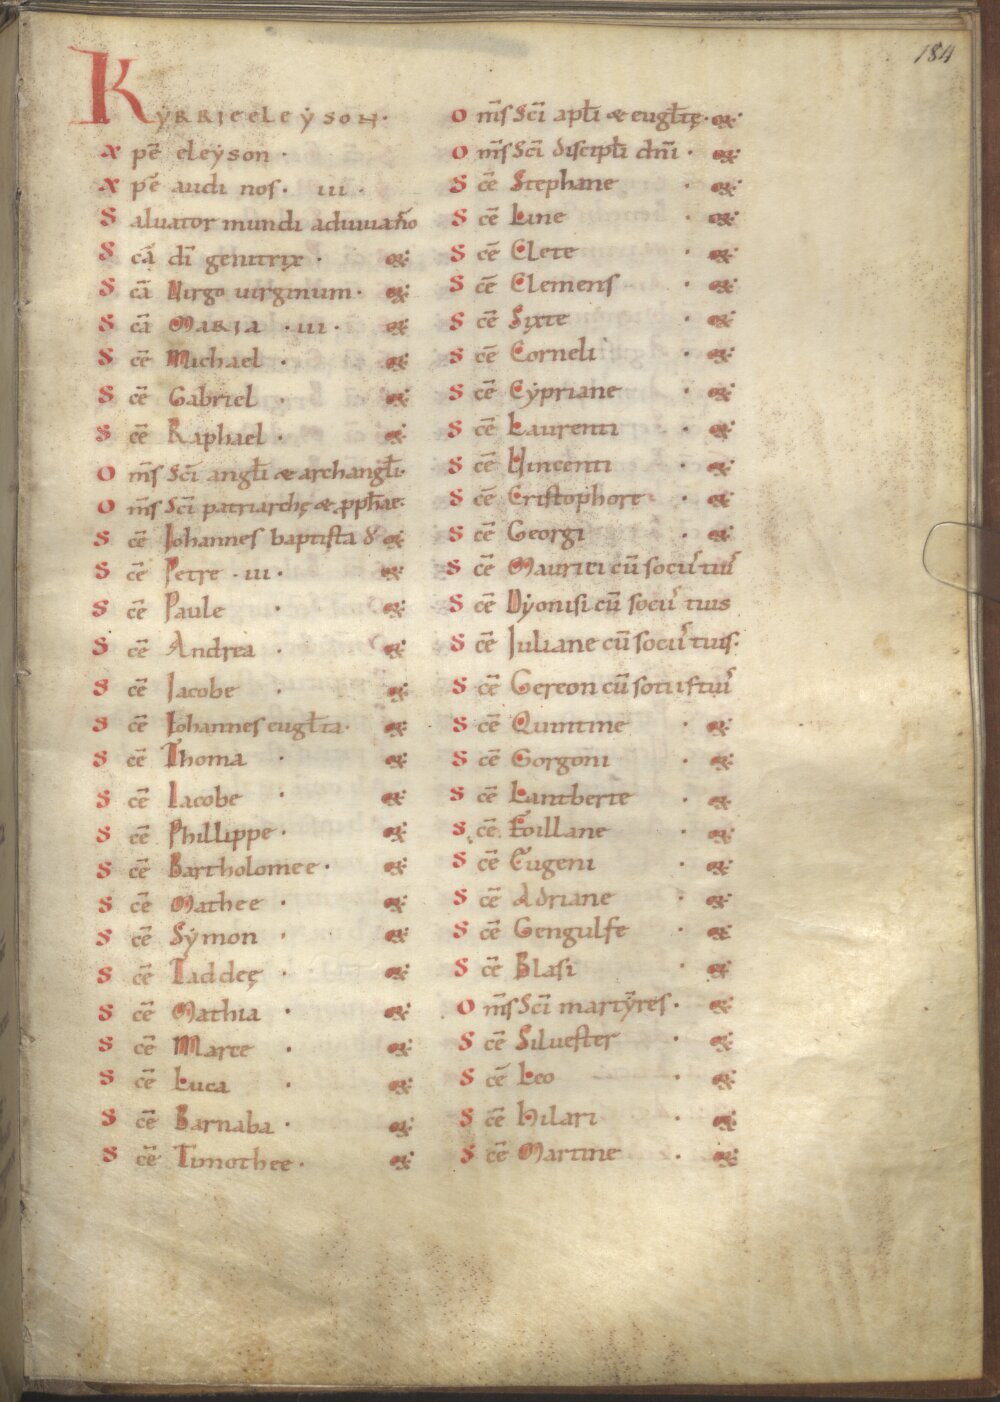 184
KYRRIE eLeYSON·
Xpē eleyson ·
Xpē audi nos· III ·
Saluator mundi adiuua ño
Scā dī genitrix · oR
Scā Virgo uirginum· oR
Scā MARIA · III · oR
Scē Michael · oR
Scē Gabriel · oR
Scē Raphael · oR
Om̄s Scī angłi & archangłi·
Om̄s Scī patriarchę & ꝓph̄ae·
Scē Johannes baptista oR
Scē Petre · III · oR
Scē Paule · oR
Scē Andrea · oR
Scē Jacobe · oR
Scē Iohannes eugłta· oR
Scē Thoma · oR
Scē Iacobe · oR
Scē Phillippe · oR
Scē Bartholomee · oR
Scē Mathee · oR
Scē Symon · oR
Scē Taddeę · oR
Scē Mathia · oR
Scē Marce · oR
Scē Luca · oR
Scē Barnaba · oR
Scē Timothee · oR
Om̄s Scī apłi & eugłtę· oR
Om̄s Scī discipłi dn̄i · oR
Scē Stephane · oR
Scē Line · oR
Scē Clete · oR
Scē Clemens · oR
Scē Sixte · oR
Scē Corneli · oR
Scē Cypriane · oR
Scē Laurenti · oR
Scē Vincenti · oR
Scē Cristophore · oR
Scē Georgi · oR
Scē Maurici cū sociis tuis
Scē Dyonisi cū sociis tuis
Scē Juliane cū sociis tuis·
Scē Gereon cū sotiis tuis
Scē Quintine · oR
Scē Gorgoni · oR
Scē Lantberte · oR
Scē Foillane · oR
Scē Eugeni · oR
Scē Adriane · oR
Scē Gengulfe · oR
Scē Blasi · oR
Om̄s Scī martyres · oR
Scē Siluester · oR
Scē Leo · oR
Scē Hilari · oR
Scē Martine · oR